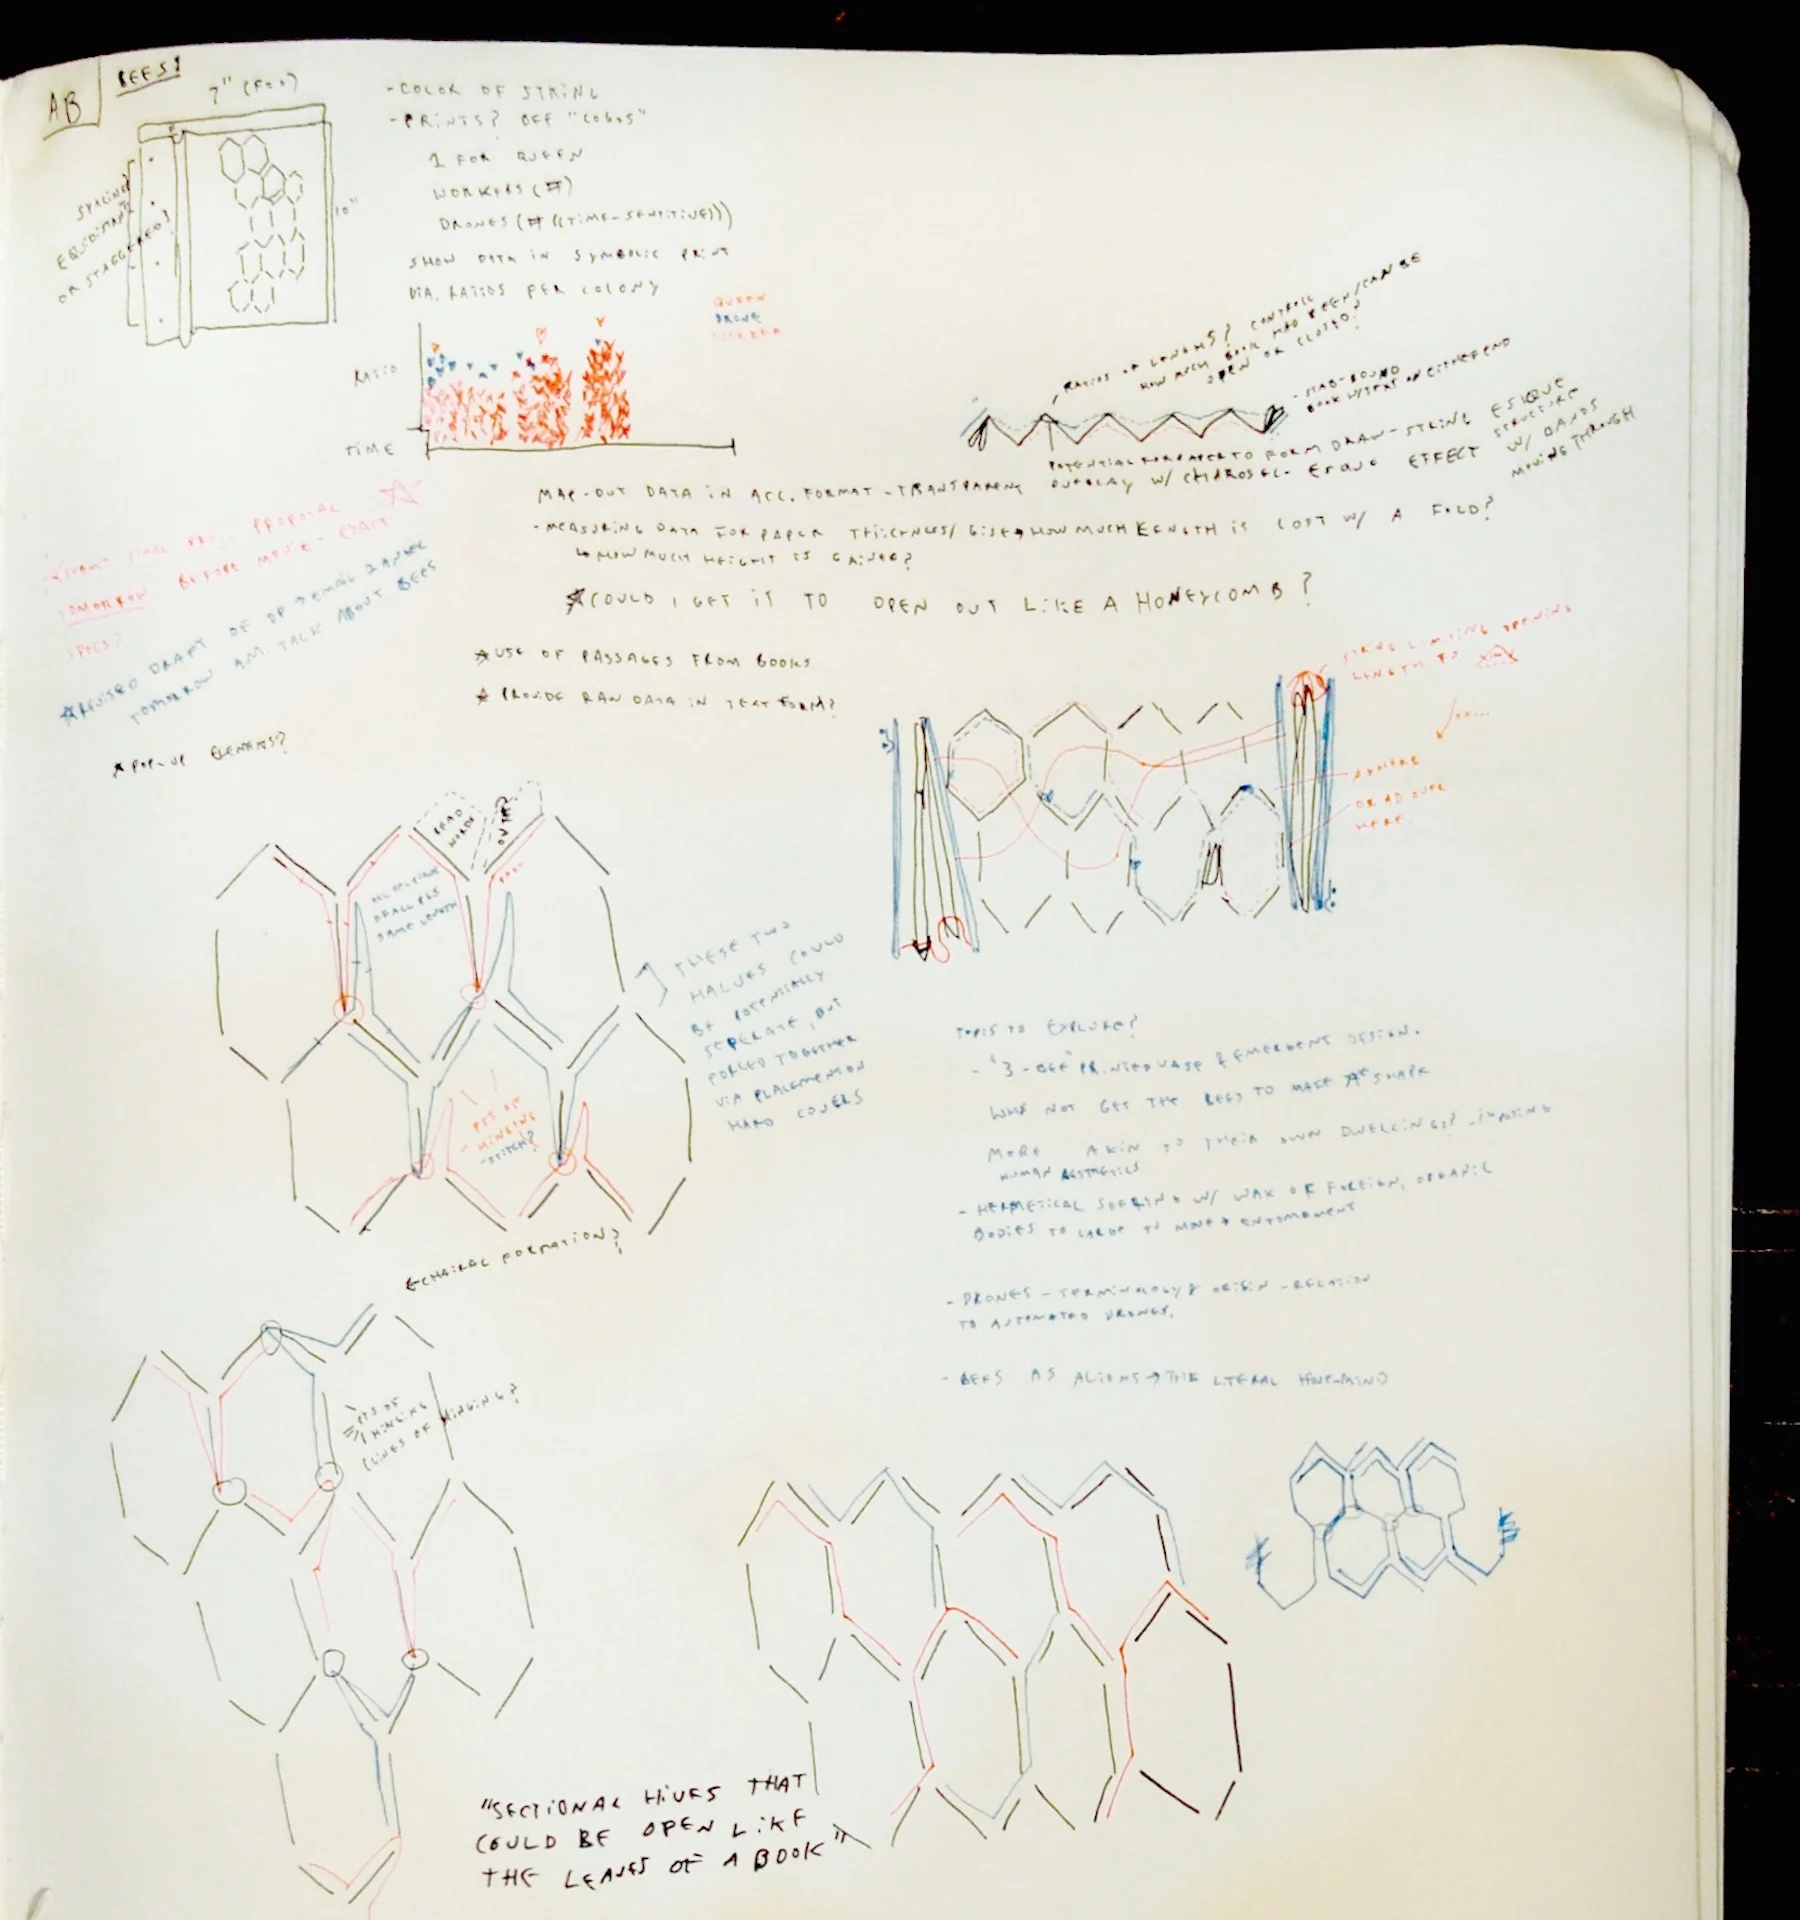 AB
BEES!
7"
10"
SPACING?
EQUIDISTANT
OR STAGGERED?
-COLOR OF STRING
-PRINTS? OFF "LOGOS"
1 FOR QUEEN
WORKERS (#)
DRONES (# ((TIME-SENSITIVE)))
SHOW DATA IN SYMBOLIC PRINT
DIA. RATIOS PER COLONY
QUEEN
DRONE
WORKER
RATIO
TIME
RATIOS OF LENGTHS? CONTROLL
HOW MUCH BOOK HAS BEEN/CAN BE
OPEN OR CLOSED?
-STAB-BOUND
BOOK W/TEXT ON EITHER END
POTENTIAL FOR PAPER TO FORM DRAW-STRING ESIQUE
STRUCTURE
W/ BANDS
MOVING THROUGH
MAP-OUT DATA IN ACC. FORMAT - TRANSPARENT OVERLAY W/ EFFECT
-MEASURING DATA FOR PAPER THICKNESS/ HOW MUCH LENGTH IS LOST W/ A FOLD?
↳ HOW MUCH HEIGHT IS GAINED?
☆COULD I GET IT TO OPEN OUT LIKE A HONEYCOMB?
FINAL PROPOSAL ☆
TOMORROW BEFORE MOVIE - EXACT
SPECS?
☆REVISED DRAFT OF DP → EMAIL
TOMORROW A.M. TALK ABOUT BEES
☆USE OF PASSAGES FROM BOOKS
☆ PROVIDE RAW DATA IN TEXT FORM?
☆POP-UP ELEMENTS?
STRING LIMITING OPENING
LENGTH TO
EITHER
OR
HERE.
SAME LENGTH
THESE TWO
HALVES COULD
BE POTENTIALLY
SEPERATE, BUT
FORCED TOGETHER
VIA PLACEMENT ON
HARD COVERS
PTS OF
HINGING
-STITCH?
←CHAIRAL FORMATION?
TOPICS TO EXPLORE?
- "3-BEE" PRINTED VASE & EMERGENT DESIGN.
WHY NOT GET THE BEES TO MAKE A SHAPE
MORE AKIN TO THEIR OWN DWELLINGS? -IMPOSING
HUMAN AESTHETICS
- HERMETICAL SEALING W/ WAX OF FOREIGN, ORGANIC
BODIES TO LARGE TO MOVE → ENTOMBMENT
- DRONES - TERMINOLOGY & ORIGIN - RELATION
TO AUTOMATED DRONES.
- BEES AS ALIENS → THE LITERAL HIVE-MIND
PTS OF
HINGING
(LINES OF HINGING?
"SECTIONAL HIVES THAT
COULD BE OPEN LIKE
THE LEAVES OF A BOOK"